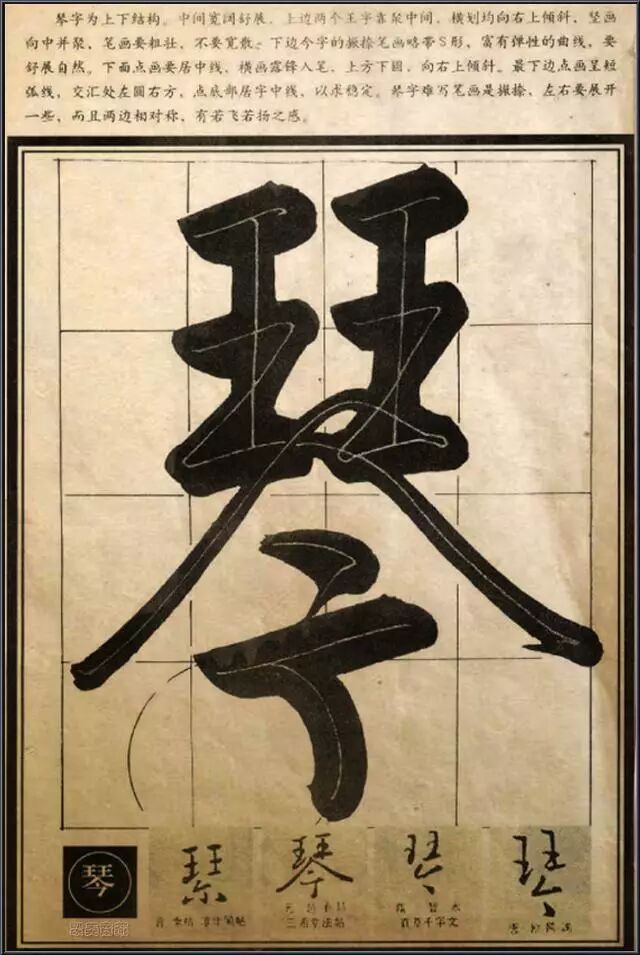 琴字为上下结构。中间宽阔舒展，上边两个王字靠聚中间，横划均向右上倾斜，竖画
向中并聚，笔画要粗壮，不要宽散。下边今字的撇捺笔画略带S形，富有弹性的曲线，要
舒展自然。下面点画要居中线，横画露锋入笔，上方下圆，向右上倾斜。最下边点画呈短
弧线，交汇处左圆右方，点底部居字中线，以求稳定。琴字难写笔画是撇捺，左右要展开
一些，而且两边相对称，有若飞若扬之感。
琴
琴
琴 琴 琴 琴
真草千字文